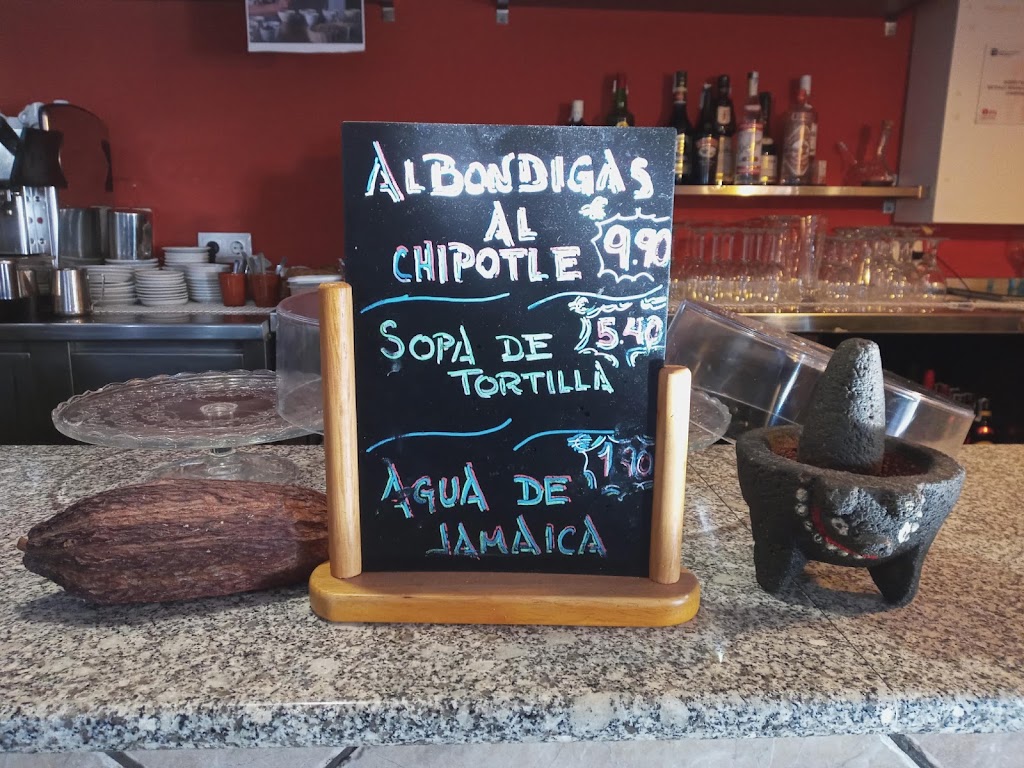 ALBONDIGAS
AL
CHIPOTLE
€ 9.90
SOPA DE
TORTILLA
€ 5.40
AGUA DE
JAMAICA
€ 1.70